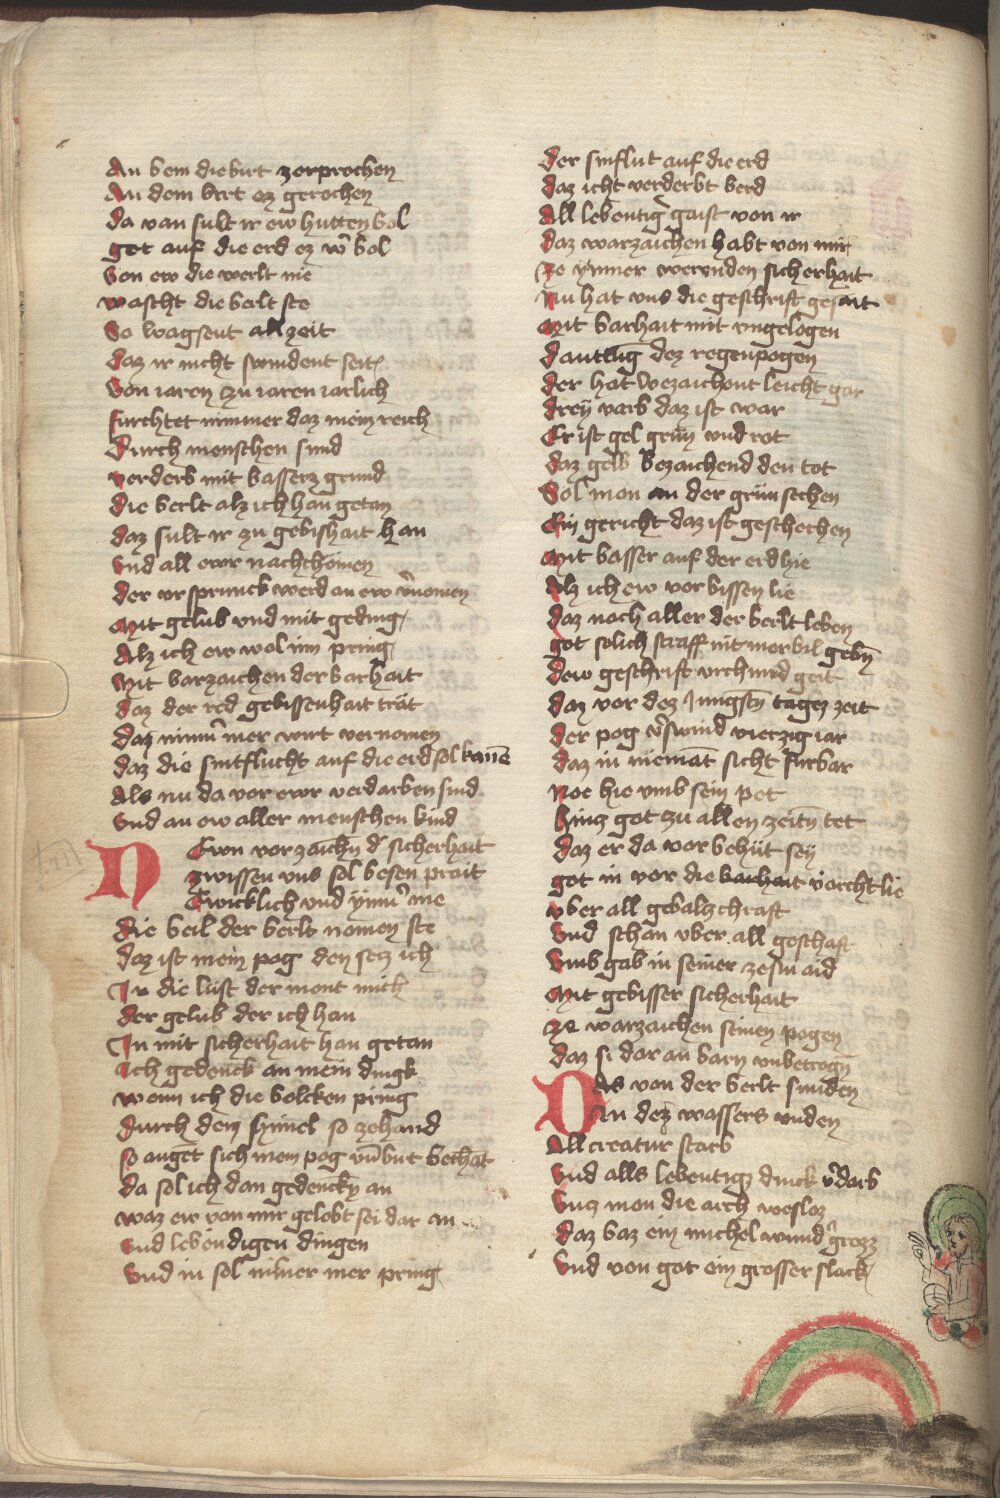 An bem die birt zerprochen
An dem birt ez gerochen
da van sult ir ew hutten bol
get auf die erd ez w̄ bol
Von ew die werlt me
wascht die belt ste
So wagsent all zeit
daz ir nicht swindent seit
Von iaren zu iaren iarlich
furchtet nimmer daz mein reich
Durch menschen sund
verderb mit bassers grund
die berlt alz ich han getan
daz sult ir zu gebishait han
Vnd all ewr nachchömen
der vrsprunck werd an ew v̄nomen
Mit gelub vnd mit geding
Alz ich ew wol inn pring
Mit barzaichen der barhait
daz der red gebissenhait trät
daz nimm̄ mer wirt vernomen
daz die sintflucht auf die erd sol kumē
Als nu da vor ewr verdarben sind
Vnd an ew aller menschen kind
NEwn vorzaichn̄ d' sicherhait
zwissen vns sol besen prait
Ewicklich vnd ÿmm̄ me
die beil der berlt nomen ste
daz ist mein pog den secz ich
In die lüft der mont mich
der gelub der ich han
In mit sicherhait han getan
Ich gedenck an mein dingk
wenn ich die bolcken pring
durch den hymel so zehand
so auget sich mein pog vm̄ but bechat
da sol ich dan gedencky an
waz ew von mir gelobt sei dar an
vnd lebendigen dingen
Vnd in sol nimer mer pring
Der sinflut auf die erd
daz icht verderbt berd
All lebentig gaist von ir
daz warzaichen habt von mir
ze ymmer werenden sicherhait
Nu hat vns die geschrift gesait
Mit barhait mit vngelogen
dautung dez regenpogen
der hat bezaichent leicht gar
dreÿ varb daz ist war
Er ist gel grün vnd rot
daz gelb bezaichend den tot
Sol man an der grün sechen
Ein gericht daz ist geschechen
Mit basser auf der erd hie
Alz ich ew vor bissen lie
daz nach aller der berlt leben
got solich straff nit mer bil gebn̄
dew geschrift vrchund geit
daz vor dez Jungstn̄ tagez zeit
der pog v̄swind vierzig iar
daz in niemāt sicht furbar
Noe hie vmb sein pet
hincz got zu allen zeitn̄ tet
daz er da vor behüt seÿ
got in vor die barhait vorcht lie
vber all gebalz chraft
Vnd schan vber all geschaft
Vmb gab in seiner zesm aid
Mit gebisser sicherhait
ze warzaichen seinen pogen
daz si dar an barn vnbetrogn̄
DAs von der berlt sunden
An dez wassers vnden
All creatur starb
Vnd alls lebentigz dinck v̄darb
Bincz man die arch wesloz
daz baz ein michel wund' grozz
Vnd von got ein grosser slack